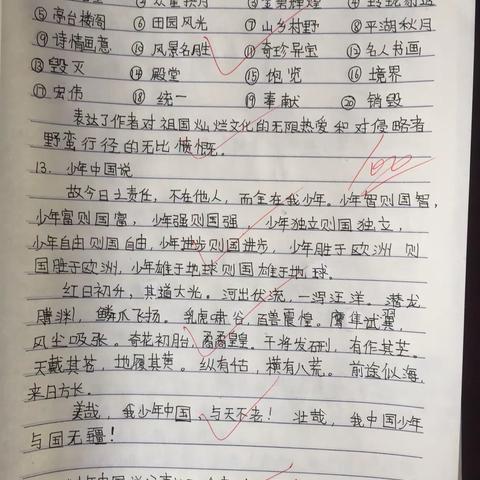 众星拱月 ③ 金碧辉煌 ④ 玲珑剔透
⑤ 亭台楼阁 ⑥ 田园风光 ⑦ 山乡村野 ⑧ 平湖秋月
⑨ 诗情画意 ⑩ 风景名胜 ⑪ 奇珍异宝 ⑫ 名人书画
⑬ 毁灭 ⑭ 殿堂 ⑮ 饱览 ⑯ 境界
⑰ 宏伟 ⑱ 统一 ⑲ 奉献 ⑳ 销毁
表达了作者对祖国灿烂文化的无限热爱和对侵略者
野蛮行径的无比愤慨。
13. 少年中国说
故今日之责任，不在他人，而全在我少年。少年智则国智，
少年富则国富，少年强则国强，少年独立则国独立，
少年自由则国自由，少年进步则国进步，少年胜于欧洲 则
国胜于欧洲，少年雄于地球则国雄于地球。
红日初升，其道大光。河出伏流，一泻汪洋。潜龙
腾渊，鳞爪飞扬。乳虎啸谷，百兽震惶。鹰隼试翼，
风尘吸张。奇花初胎，矞矞皇皇。干将发硎，有作其芒。
天戴其苍，地履其黄。纵有千古，横有八荒。前途似海，
来日方长。
美哉，我少年中国，与天不老！壮哉，我中国少年
与国无疆！